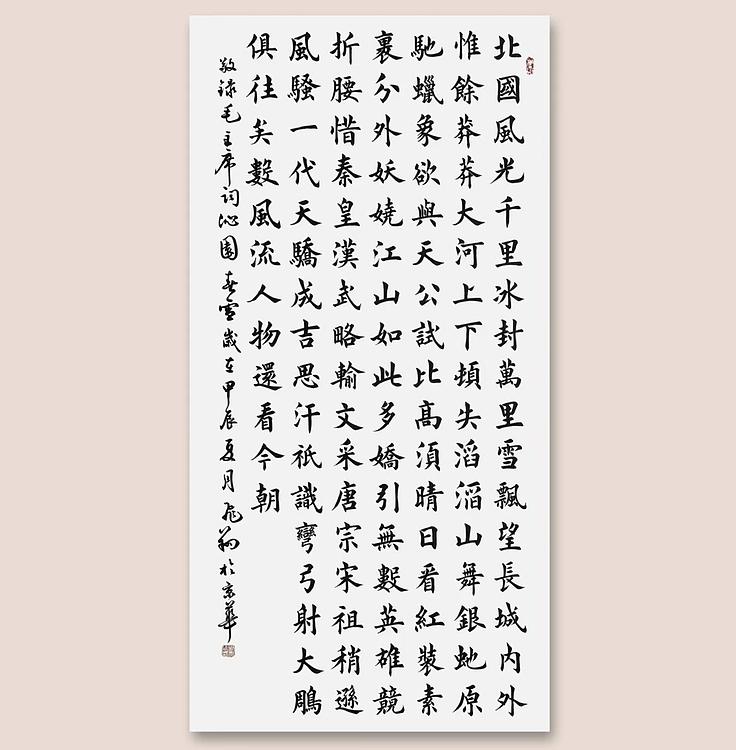 北國風光千里冰封萬里雪飄望長城內外
惟餘莽莽大河上下頓失滔滔山舞銀虵原
馳蠟象欲與天公試比高須晴日看紅裝素
裹分外妖嬈江山如此多嬌引無數英雄競
折腰惜秦皇漢武略輸文采唐宗宋祖稍遜
風騷一代天驕成吉思汗祇識彎弓射大鵰
俱往矣數風流人物還看今朝
敬錄毛主席詞沁園春雪歲在甲辰夏月於京華